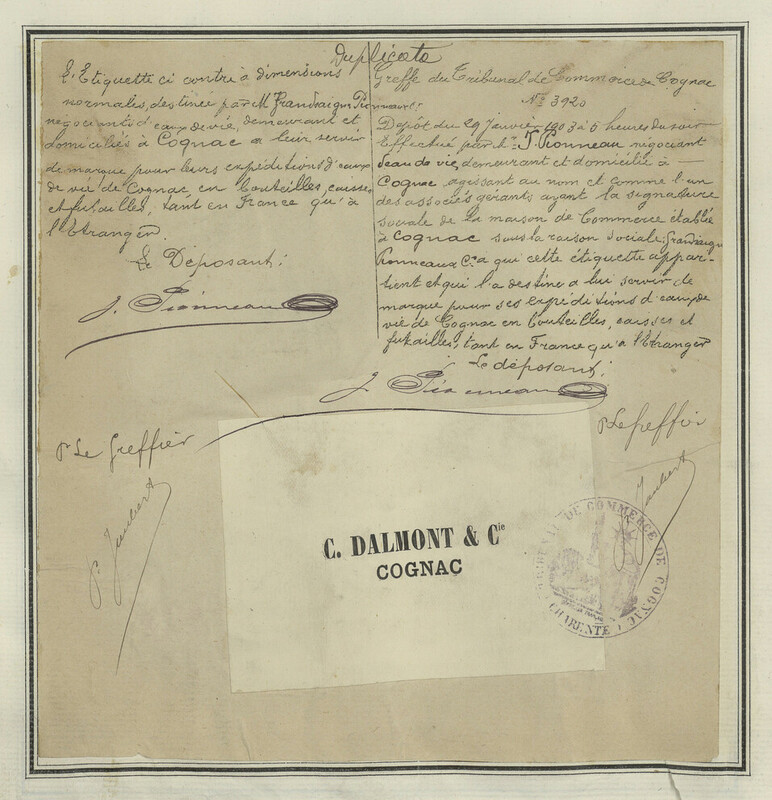 Duplicata
L'Etiquette ci contre à dimensions
normales, destinée par M
négociants d'eaux de vie, demeurant et
domiciliés à Cognac a leur servir
de marque pour leurs expéditions d'eaux
de vie de Cognac en bouteilles, caisses
et futailles, tant en France qu'à
l'Etranger
Le Déposant:
J. Pionneau
Greffe du Tribunal de Commerce de Cognac
N° 3920
Dépôt du 29 Janvier 1903 à 5 heures du soir
Effectué par M. J. Pionneau négociant
d'eau de vie, demeurant et domicilié à —
Cognac agissant au nom et comme l'un
des associés gérants ayant la signature
sociale de la maison de Commerce établie
à Cognac sous la raison sociale:
Pionneau & Cie a qui cette étiquette appar-
tient et qui l'a destine a lui servir de
marque pour ses expéditions d'eaux de
vie de Cognac en bouteilles, caisses et
futailles, tant en France qu'à l'Etranger
Le déposant:
J. Pionneau
Pr Le Greffier
P. Jaubert
Pr Le Greffier
Jaubert
C. DALMONT & Cie
COGNAC
TRIBUNAL DE COMMERCE DE COGNAC
CHARENTE